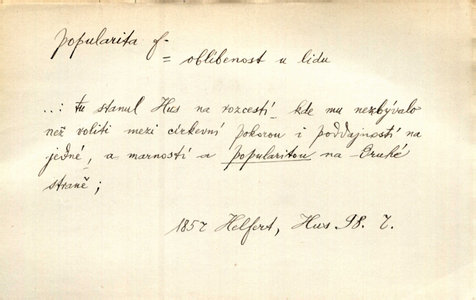 popularita f.
= oblíbenost u lidu
...: tu stanul Hus na rozcestí kde mu nezbývalo
než voliti mezi církevní pokorou i poddajností na
jedné, a marností a popularitou na druhé
straně;
1857 Helfert, Hus 98. 7.